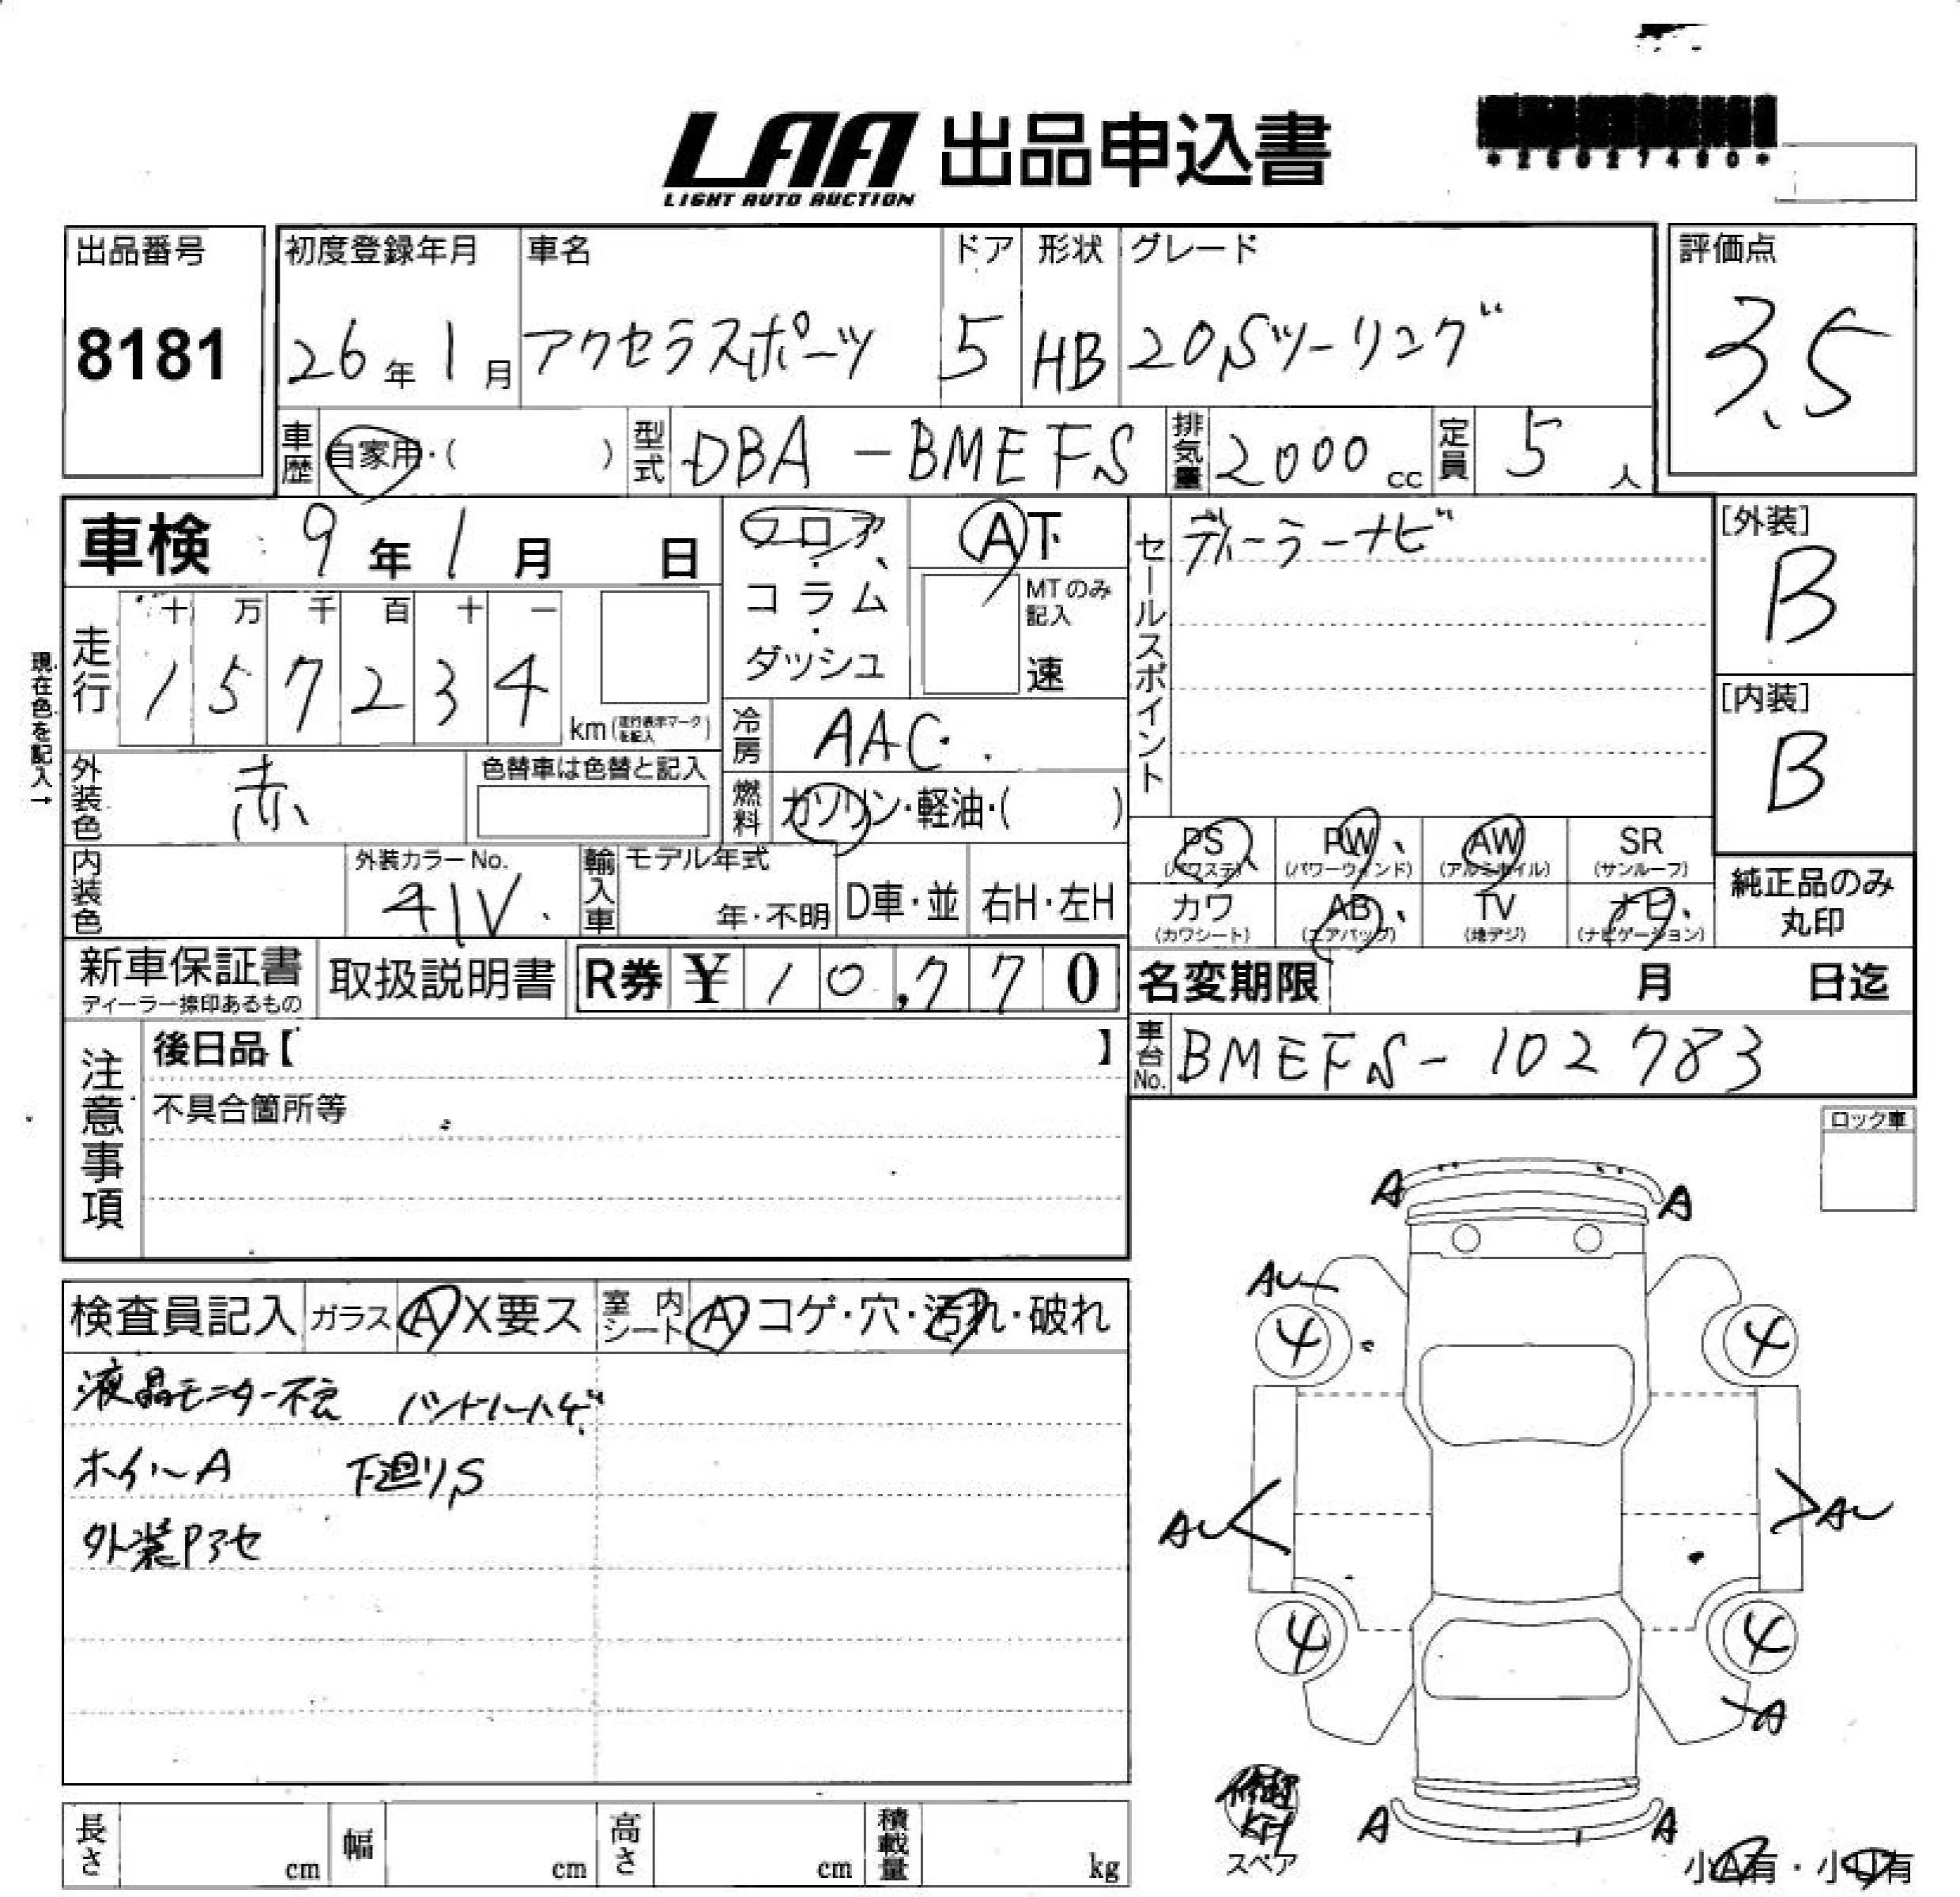 LAA 出品申込書
LIGHT AUTO AUCTION
出品番号
8181
初度登録年月
26年1月
車名
アクセラスポーツ
ドア
5
形状
HB
グレード
20Sツーリング
評価点
3.5
車歴 自家用・( )
型式 DBA-BMEFS
排気量 2000cc
定員 5人
車検 9年1月 日
フロア・コラム・ダッシュ
A下
MTのみ記入
速
セールスポイント
ディーラーナビ
[外装]
B
[内装]
B
走行
十 万 千 百 十 一
1 5 7 2 3 4 km (走行表示マークを記入)
現在色を記入→
外装色 赤
色替車は色替と記入
冷房 AAC
燃料 ガソリン・軽油・( )
内装色
外装カラーNo.
41V
輸入車 モデル年式
年・不明
D車・並
右H・左H
PS (パワステ)
PW (パワーウィンド)
AW (アルミホイル)
SR (サンルーフ)
カワ (カワシート)
AB (エアバッグ)
TV (地デジ)
ナビ (ナビゲーション)
純正品のみ丸印
新車保証書
ディーラー捺印あるもの
取扱説明書
R券 ¥10,770
名変期限 月 日迄
車台No. BMEFS-102783
注意事項
後日品【 】
不具合箇所等
ロック車
検査員記入
ガラス A X要ス
室内シート A コゲ・穴・汚れ・破れ
液晶モニター不良 ハンドルハゲ
ホイールA 下廻りS
外装Pアセ
A A
AU
4 4
AU AU
4 4
A
A A
スペア
小A有・小U有
長さ cm
幅 cm
高さ cm
積載量 kg